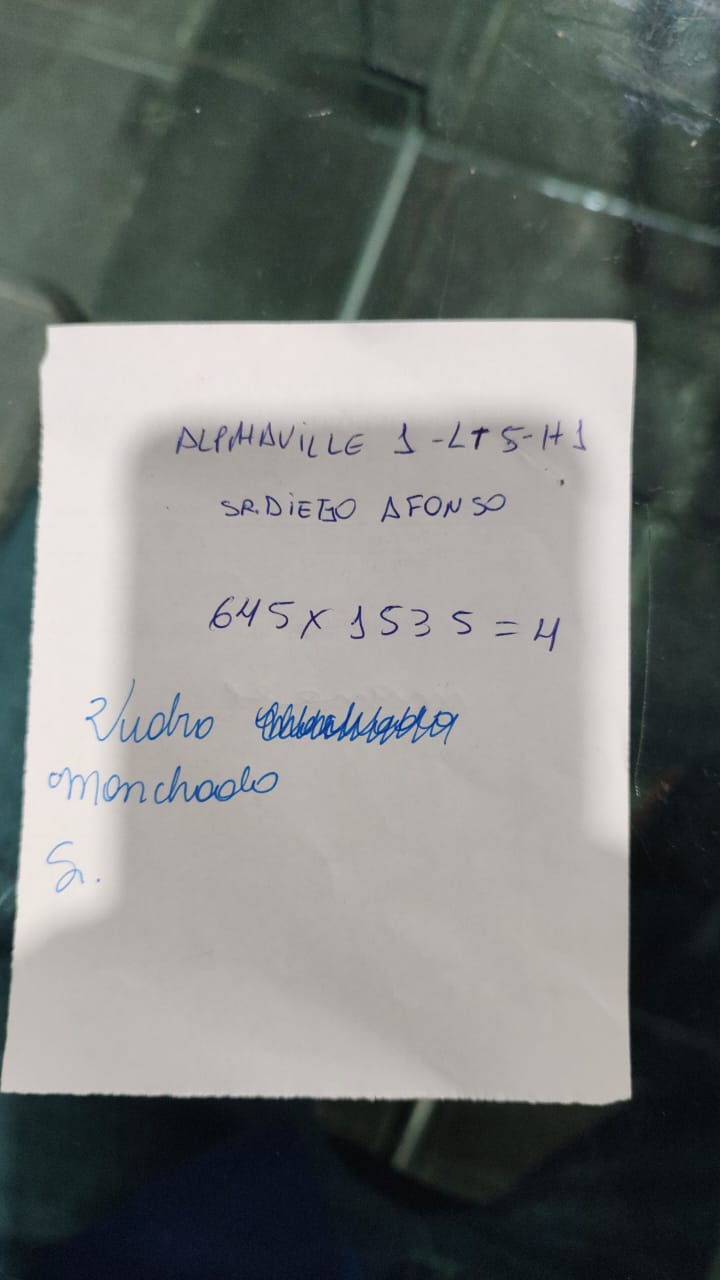 ALPHAVILLE 1 - LT 5 - H1
SR. DIEGO AFONSO
645 x 1535 = 4
Vidro
Manchado
S.